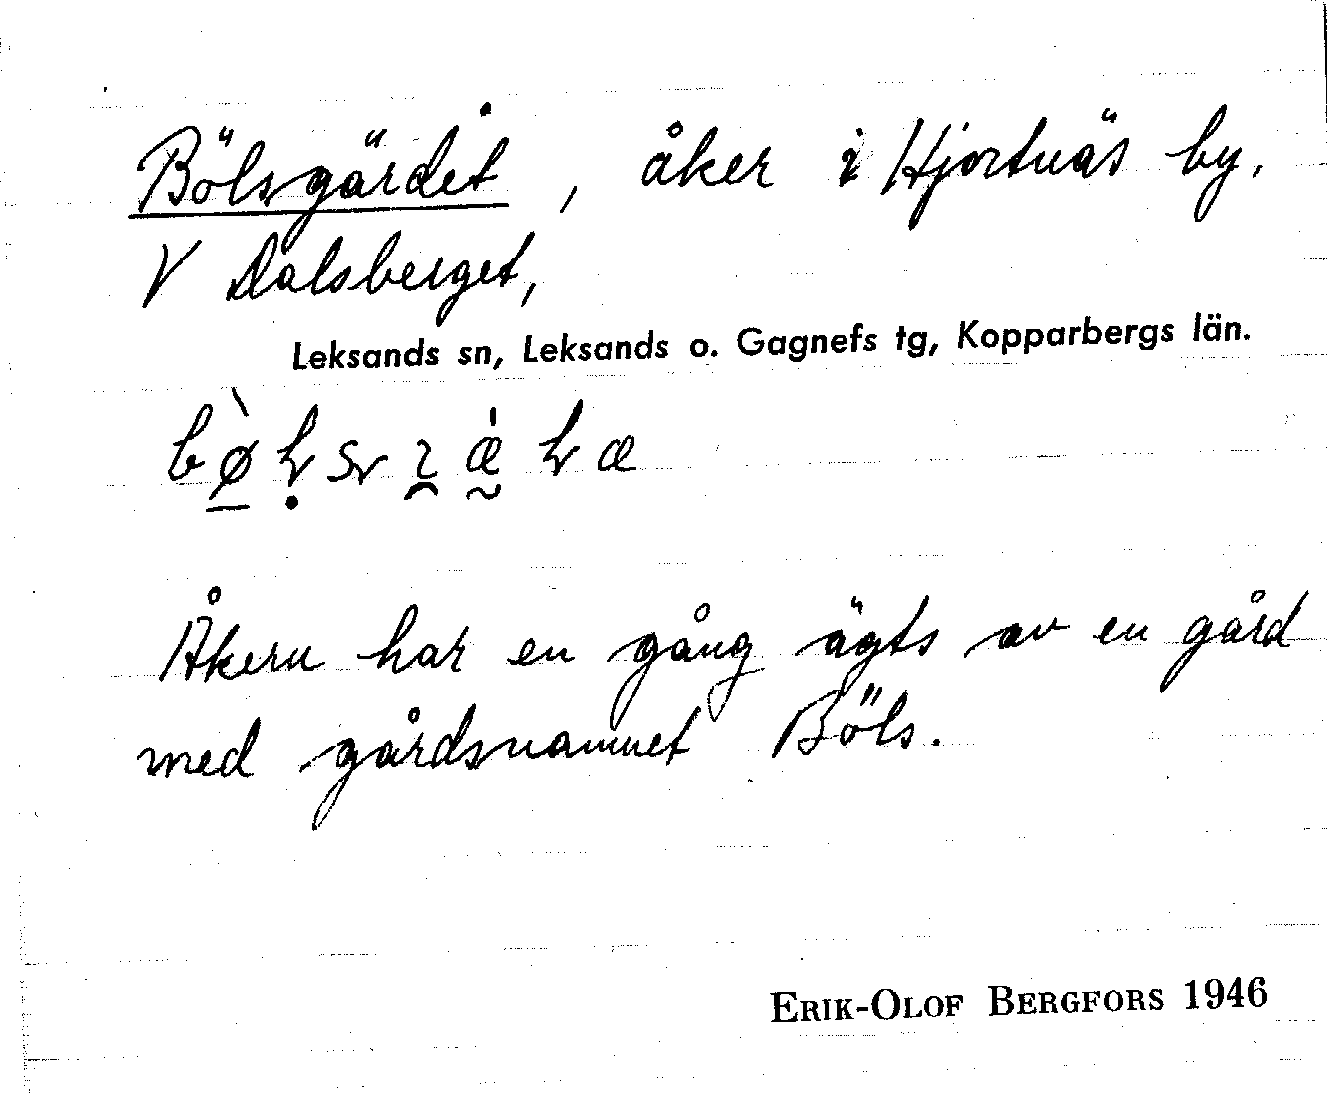 Bölsgärdet, åker i Hjortnäs by.
V Dalsberget,
Leksands sn, Leksands o. Gagnefs tg, Kopparbergs län.
Åkern har en gång ägts av en gård
med gårdsnamnet Böls.
ERIK-OLOF BERGFORS 1946